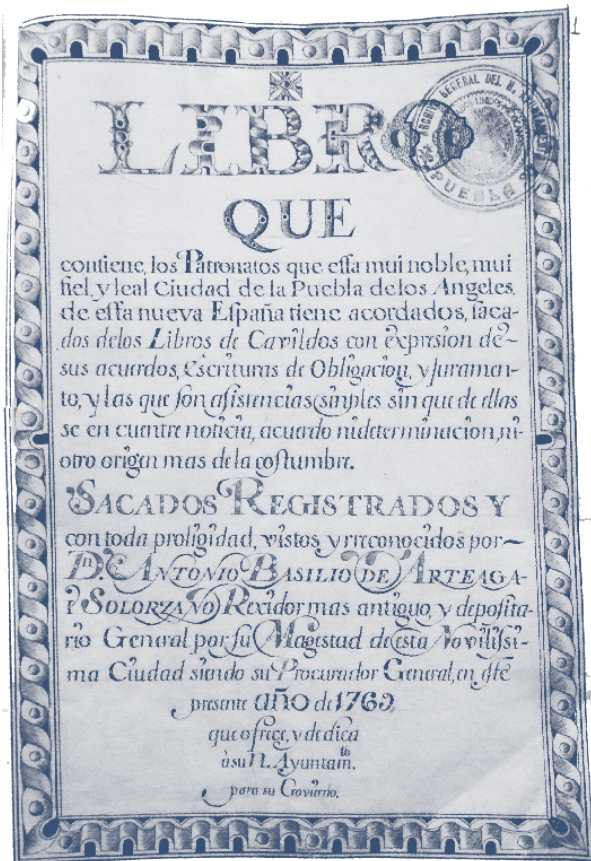 1
ARCHIVO GENERAL DEL H. AYUNTAMIENTO
PUEBLA
LIBRO
QUE
contiene, los Patronatos que esta mui noble, mui
fiel, y leal Ciudad de la Puebla delos Angeles,
de esta nueva España tiene acordados, saca-
dos delos Libros de Cavildos con expresion de
sus acuerdos, Escrituras de Obligacion, y Juramen-
to, y las que son asistencias simples sin que de ellas
se en cuentre noticia, acuerdo ni determinacion, ni
otro origen mas dela costumbre.
SACADOS REGISTRADOS Y
con toda proligidad, vistos y rreconocidos por
Dn. ANTONIO BASILIO DE ARTEAGA
Y SOLORZANO Rexidor mas antiguo, y deposita-
rio General por su Magestad de esta Novilissi-
ma Ciudad siendo su Procurador General, en este
presente año de 1769,
que ofrece, y dedica
à su N. Ayuntamto.
para su Govierno.